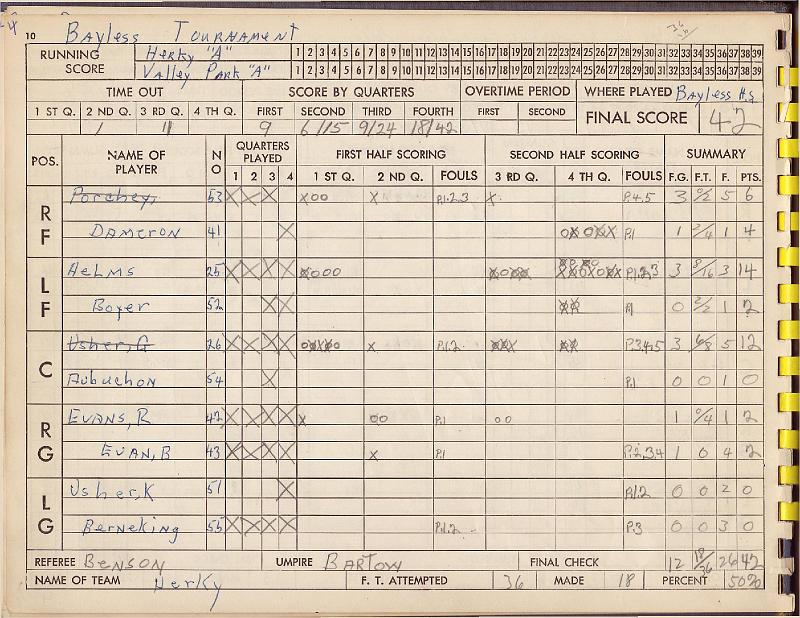 10 Bayless Tournament 36
RUNNING SCORE Herky "A" 1 2 3 4 5 6 7 8 9 10 11 12 13 14 15 16 17 18 19 20 21 22 23 24 25 26 27 28 29 30 31 32 33 34 35 36 37 38 39
Valley Park "A" 1 2 3 4 5 6 7 8 9 10 11 12 13 14 15 16 17 18 19 20 21 22 23 24 25 26 27 28 29 30 31 32 33 34 35 36 37 38 39
TIME OUT SCORE BY QUARTERS OVERTIME PERIOD WHERE PLAYED Bayless H.S
1 ST Q. 2 ND Q. 3 RD Q. 4 TH Q. FIRST SECOND THIRD FOURTH FIRST SECOND FINAL SCORE 42
1 11 9 6/15 9/24 18/42
POS. NAME OF PLAYER NO QUARTERS PLAYED FIRST HALF SCORING SECOND HALF SCORING SUMMARY
1 2 3 4 1 ST Q. 2 ND Q. FOULS 3 RD Q. 4 TH Q. FOULS F.G. F.T. F. PTS.
RF Porchey, 53 X X X X00 X P.1.2.3 X P.4.5 3 0/2 5 6
Dameron 41 X P.1 1 2/4 1 4
LF Helms 25 X X X X P.1.2.3 3 8/16 3 14
Boyer 52 X X P.1 0 2/2 1 2
C Usher, G 26 X X X X X P.1.2 P.3.4.5 3 6/8 5 12
Aubuchon 54 X P.1 0 0 1 0
RG Evans, R 42 X X X X X 00 P.1 00 1 0/4 1 2
Evan, B 43 X X X X X P.1 P.2.3.4 1 0 4 2
LG Usher, K 51 X P.1.2 0 0 2 0
Berneking 55 X X X X P.1.2 P.3 0 0 3 0
REFEREE Benson UMPIRE Bartow FINAL CHECK 12 18/36 26 42
NAME OF TEAM Herky F. T. ATTEMPTED 36 MADE 18 PERCENT 50%